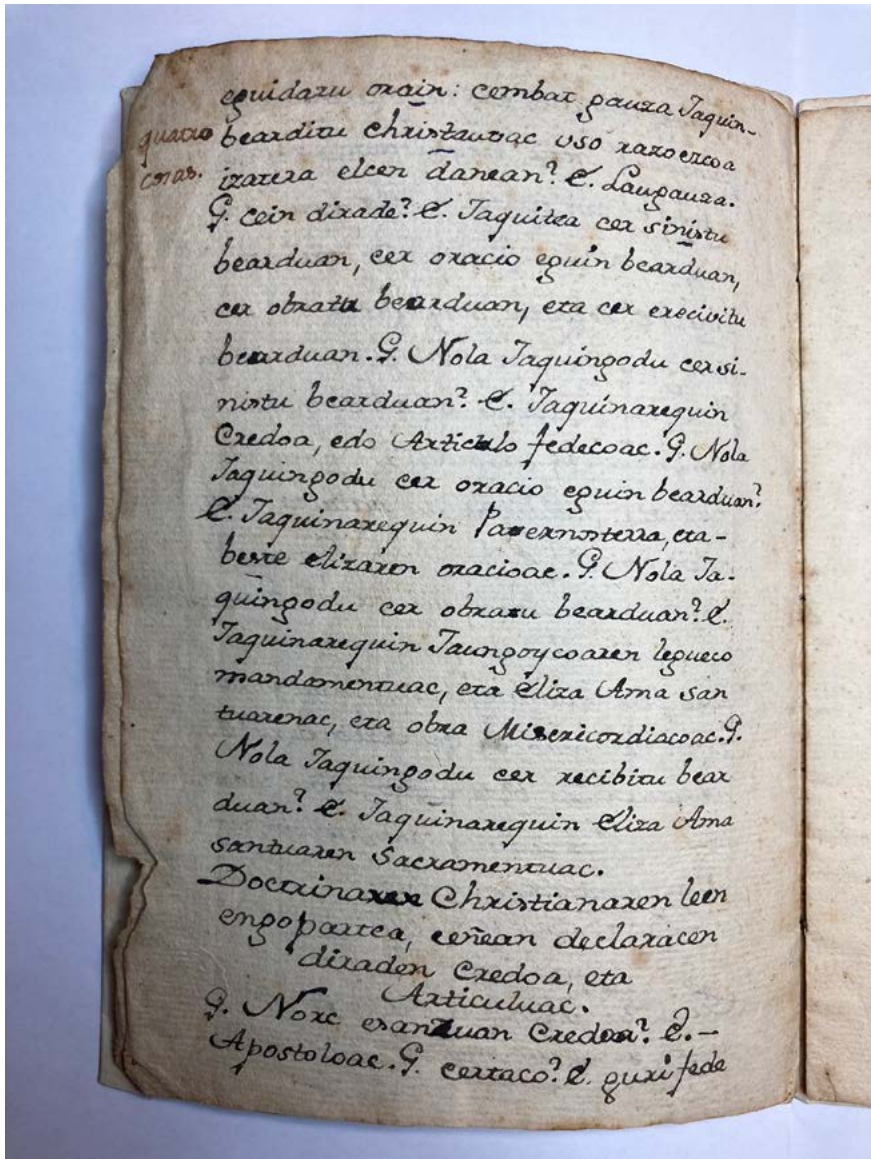 eguidazu orain: cembat gauza Jaquin-
quatro
cosas.
bearditu christauac uso razoezcoa
izatera elcen danean? E. Laugauza.
G. cein dirade? E. Jaquitea cer sinistu
bearduan, cer oracio eguin bearduan,
cer obratu bearduan, eta cer erecivitu
bearduan. G. Nola Jaquingodu cer si-
nistu bearduan? E. Jaquinarequin
Credoa, edo Articulo fedecoac. G. Nola
Jaquingodu cer oracio eguin bearduan?
E. Jaquinarequin Paternosterra, eta-
beste elizaren oracioac. G. Nola Ja-
quingodu cer obratu bearduan? E.
Jaquinarequin Jaungoycoaren legueco
mandamentuac, eta Eliza Ama san
tuarenac, eta obra Misericordiacoac. G.
Nola Jaquingodu cer recibitu bear
duan? E. Jaquinarequin Eliza Ama
santuaren Sacramentuac.
Doctrinaren Christianaren leen
engo partea, ceñean declaracen
diraden Credoa, eta
Articuluac.
G. Norc esanzuan Credoa? E. -
Apostoloac. G. certaco? E. guri fede